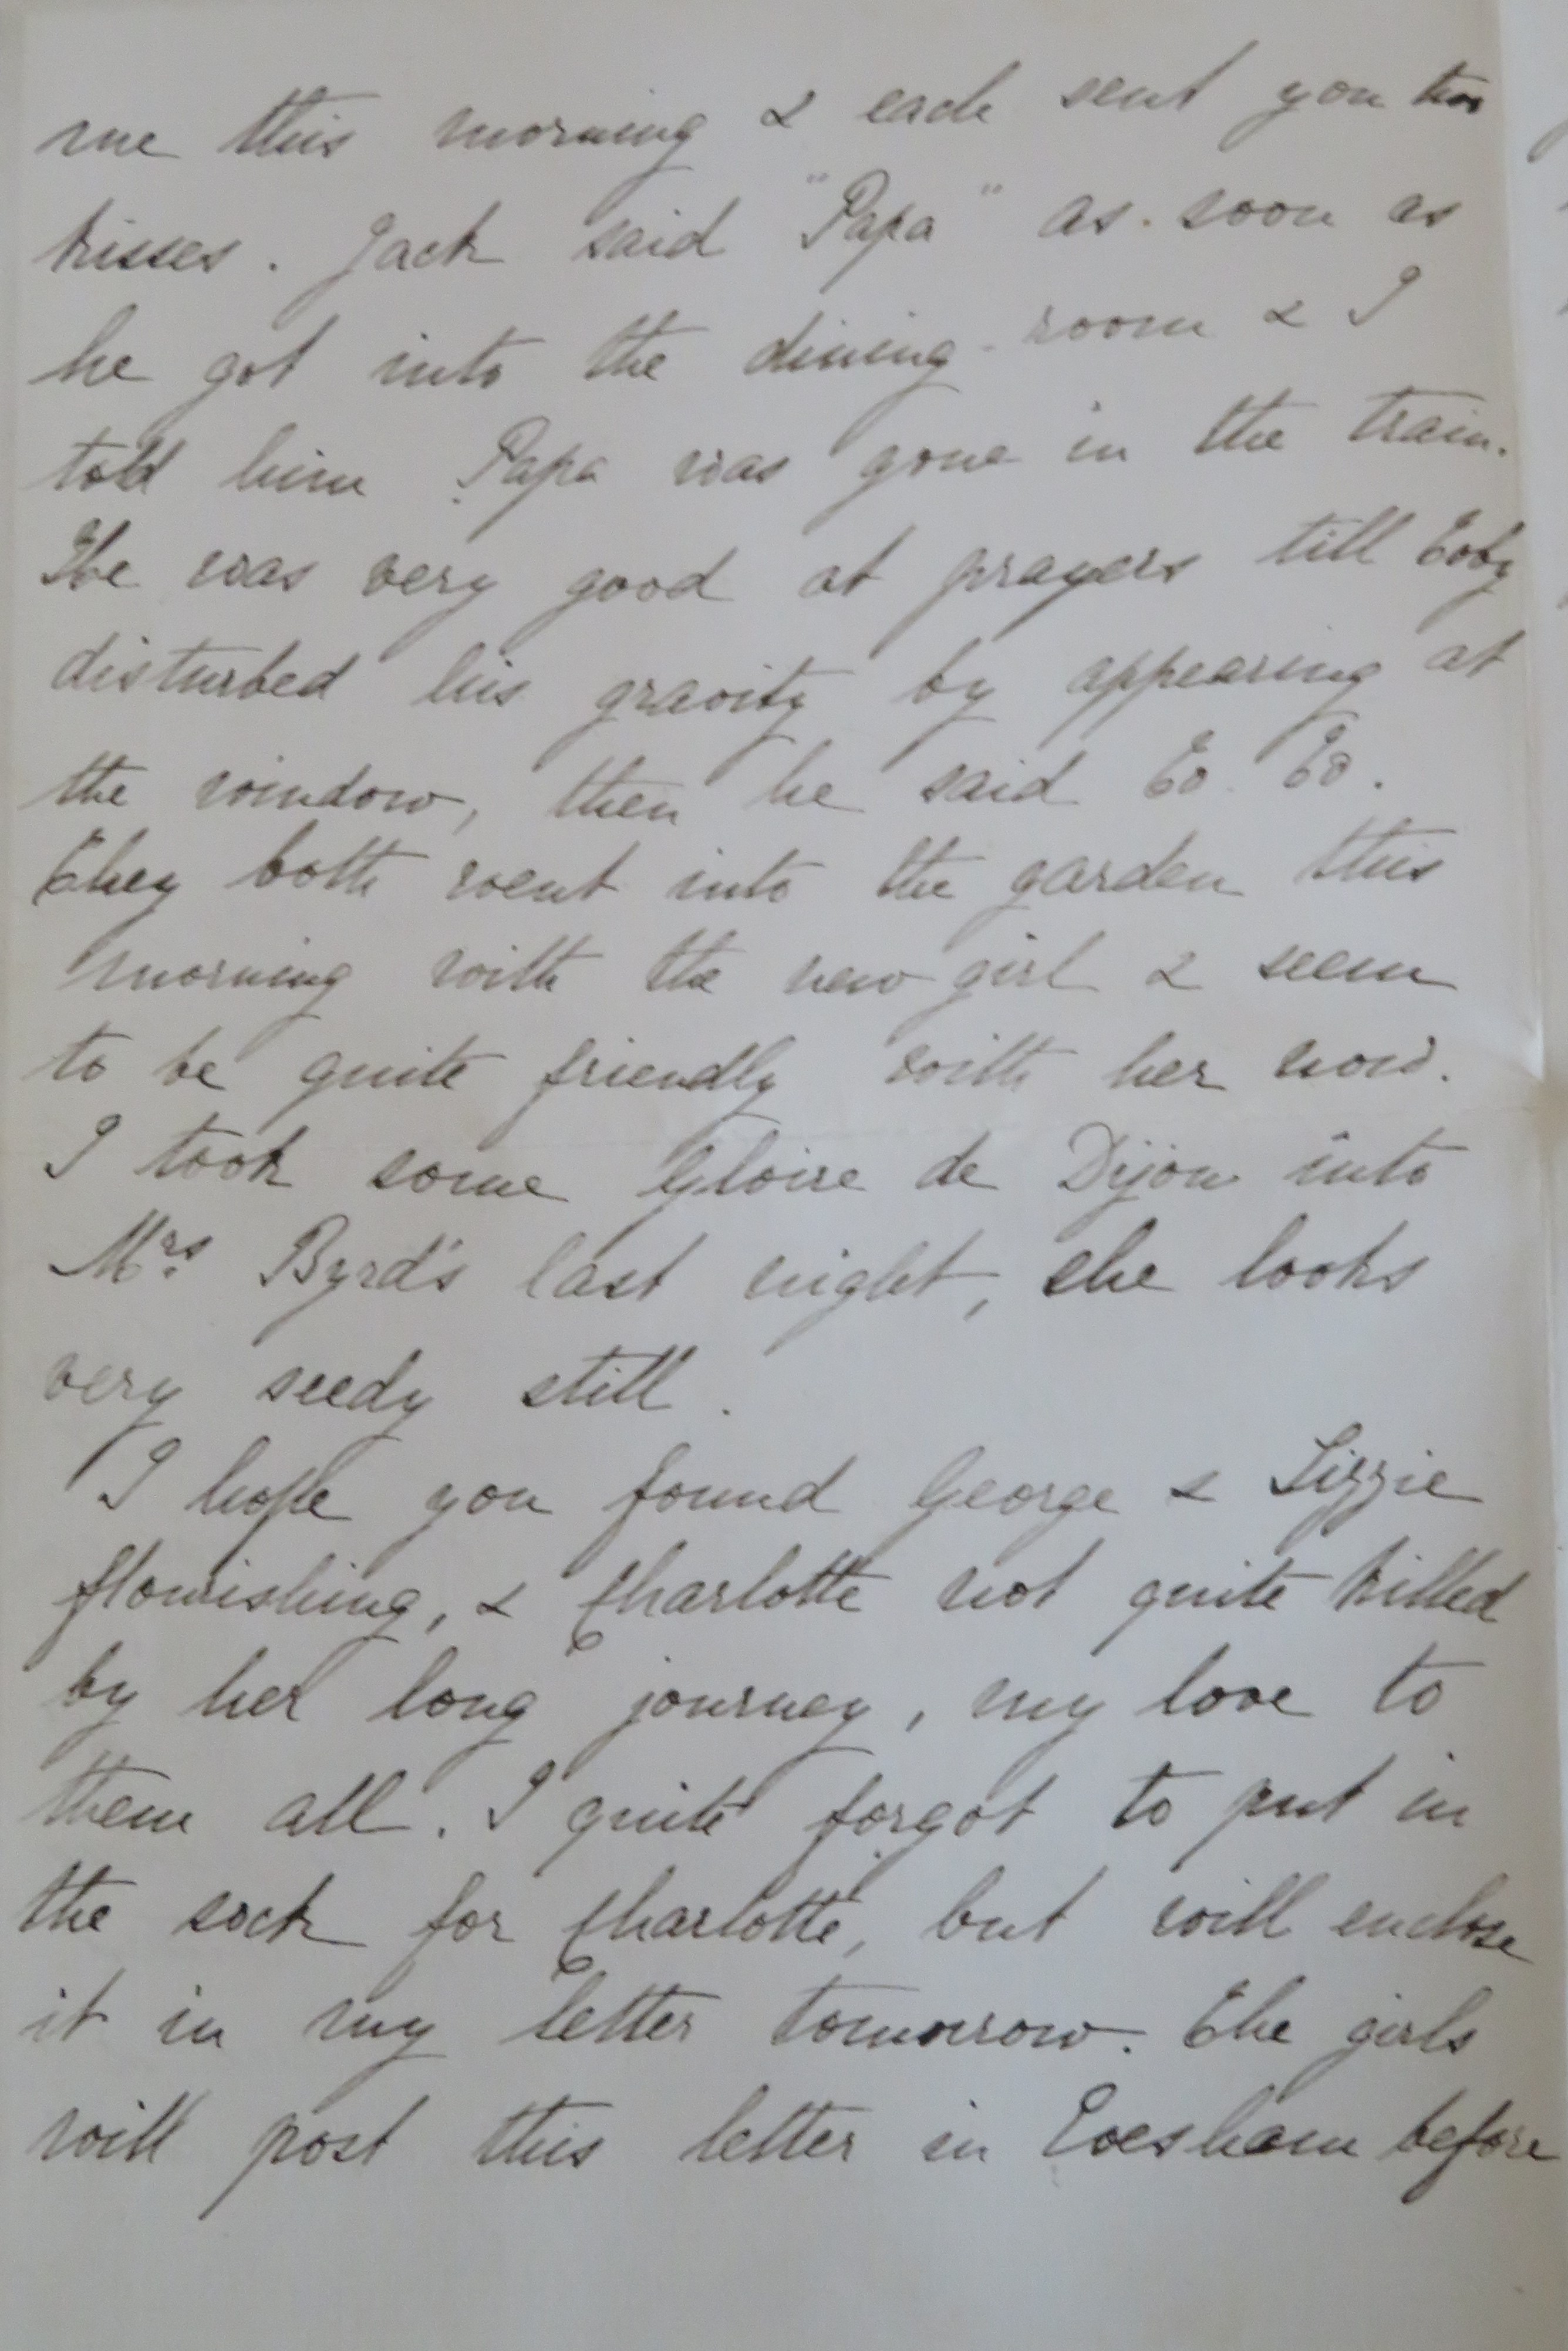 me this morning & each sent you two
kisses. Jack said "Papa" as soon as
he got into the dining-room & I
told him Papa was gone in the train.
He was very good at prayers till Toby
disturbed his gravity by appearing at
the window, then he said To. To.
They both went into the garden this
morning with the new girl & seem
to be quite friendly with her now.
I took some Gloire de Dijon into
Mrs. Byrd's last night, she looks
very seedy still.
I hope you found George & Lizzie
flourishing, & Charlotte not quite killed
by her long journey, my love to
them all. I quite forgot to put in
the sock for Charlotte, but will enclose
it in my letter tomorrow. The girls
will post this letter in Evesham before